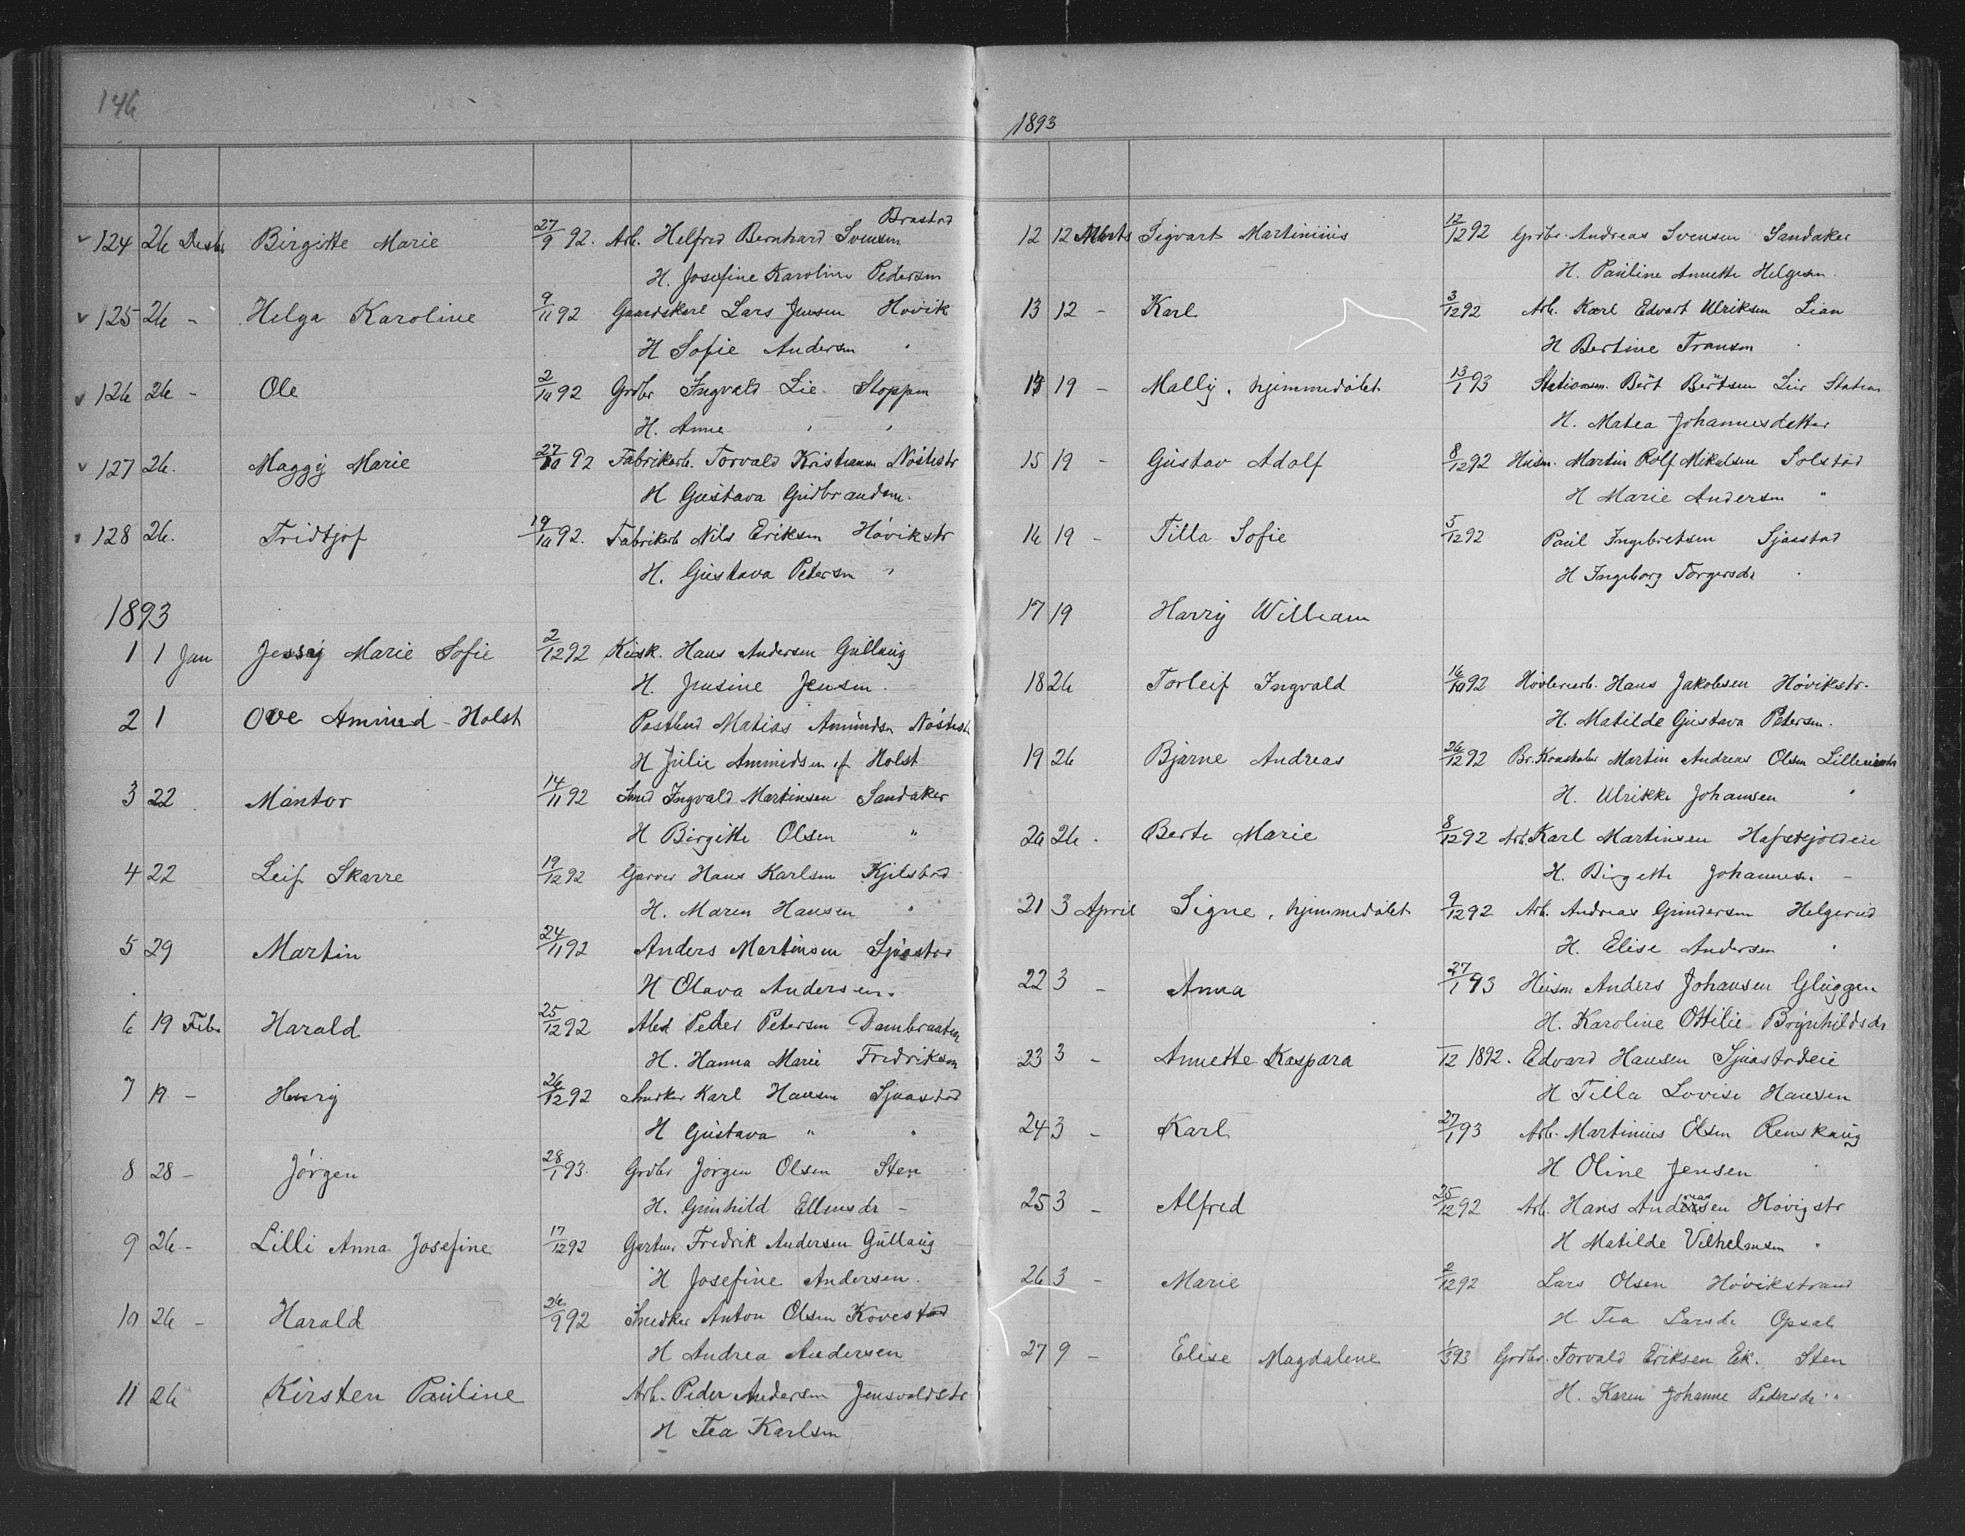 146
124 26 Desbr Birgitte Marie 27/9 92. Arb. Helfred Bernhard Svensen Brastad
H. Josefine Karoline Pedersen
125 26 - Helga Karoline 9/11 92 Gaardskarl Lars Jensen Høvik
H Sofie Andersen "
126 26 - Ole 2/10 92 Grdbr Ingvald Lie Stoppen
H. Anne " "
127 26. Maggy Marie 27/10 92 Fabrikarb. Torvald Kristiansen Nøstestr
H Gustava Gudbrandsen.
128 26. Fridtjof 19/10 92. Fabrikarb Nils Eriksen Høvikstr
H. Gustava Petersen "
1893
1 1 Jan Jenny Marie Sofie 2/12 92 Kusk. Hans Andersen Gullaug
H. Jensine Jensen.
2 1 Ove Amund Holst Postbud Matias Amundsen Nøstestr
H Julie Amundsen f Holst
3 22 Mantor 14/11 92 Smed Ingvald Martinsen Sandaker
H Birgitte Olsen "
4 22 Leif Skarre 19/12 92 Garver Hans Karlsen Kjilstad
H. Maren Hansen "
5 29 Martin 24/11 92 Anders Martinsen Sjaastad
H Olava Andersen.
6 19 Febr Harald 25/12 92 Peder Petersen Dambraaten
H. Hanna Marie Fredriksen
7 19 - Henry 26/12 92 Snedker Karl Hansen Sjaastad
H Gustava " "
8 28 - Jørgen 28/1 93. Grdbr Jørgen Olsen Sten
H. Gunhild Ellensdr -
9 26 - Lilli Anna Josefine 17/12 92 Gartner Fredrik Andersen Gullaug
H Josefine Andersen.
10 26 - Harald 26/9 92 Snedker Anton Olsen Kovestad
H Andrea Andersen
11 26 Kirsten Pauline Arb. Peder Andersen Jensvoldstr
H Tea Karlsen
1893
12 12 Marts Sigvart Martinius 12/12 92 Grdbr. Andreas Svensen Sandaker
H. Pauline Annette Helgesen.
13 12 - Karl 3/12 92 Arb. Karl Edvart Ulriksen Lian
H Bertine Fransen "
14 19 - Mally, hjemmedøbt 13/1 93 Stationsm. Bert Bertsen Lier Station
H. Matea Johannesdatter
15 19 - Gustav Adolf 8/12 92 Husm. Martin Rolf Mikalsen Solstad
H Marie Andersen "
16 19 - Tilla Sofie 5/12 92 Paul Ingebretsen Sjaastad
H Ingeborg Torgersdr "
17 19 Harry William
18 26 Torleif Ingvald 16/10 92 Høvleriarb. Hans Jakobsen Høvikstr.
H. Matilde Gustava Petersen.
19 26 Bjarne Andreas 26/12 92 Martin Andreas Olsen
H. Ulrikke Johansen "
20 26. Berte Marie 8/12 92 Arb. Karl Martinsen
H. Birgette Johannesen -
21 3 April Signe, hjemmedøbt 9/12 92 Arb. Andreas Gundersen Helgerud
H. Elise Andersen "
22 3 - Anna 27/1 93 Husm Anders Johansen Gluggen
H. Karoline Ottilie Brynhildsdr
23 3 - Annette Kaspara /12 1892. Edvard Hansen Sjaastadeie
H Tilla Lovise Hansen
24 3 - Karl 27/1 93 Arb. Martinius Olsen Renskaug
H Oline Jensen "
25 3 - Alfred 25/12 92 Arb. Hans Andreassen Høvigstr
H Matilde Vilhelmsen "
26 3 - Marie 2/12 92 Lars Olsen Høvikstrand
H Tea Larsdr Opsal
27 9 - Elise Magdalene 1/3 93 Grdbr. Torvald Eriksen Eik. Sten
H. Karen Johanne Pedersdr "